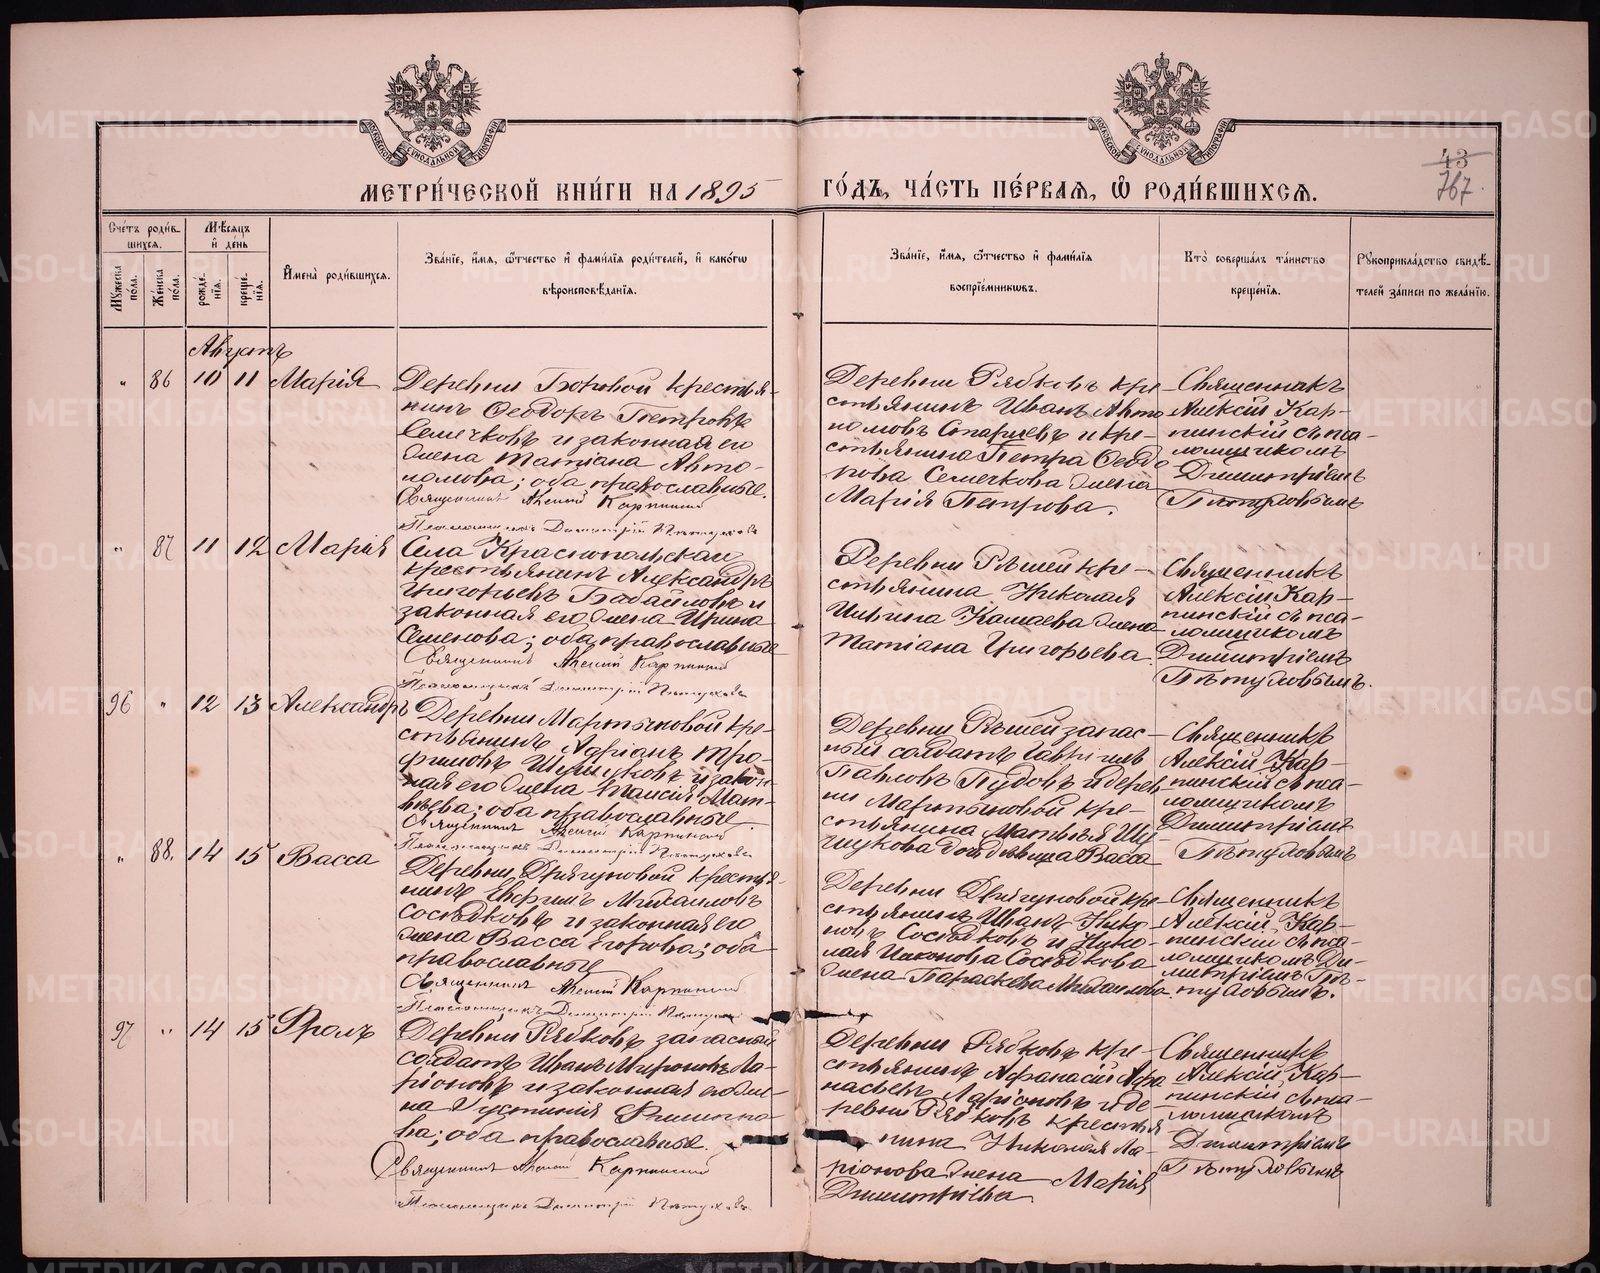 43
767.
МЕТРИ́ЧЕСКОЙ КНИ́ГИ НА 1895 ГО́ДЪ, ЧА́СТЬ ПЕ́РВАЯ, Ѡ РОДИ́ВШИХСЯ.
Сче́тъ роди́вшихся.
Мѣ́сяцъ и҆ де́нь
Мꙋжеска по́ла.
Же́нска по́ла.
рожде́нїѧ.
креще́нїѧ.
И҆мена̀ роди́вшихсѧ.
Зва́нїе, и҆́мѧ, ѻ҆́тчество и҆ фами́лїѧ роди́телей, и҆ како́гѡ
вѣроисповѣ́данїѧ.
Зва́нїе, и҆́мѧ, ѻ҆́тчество и҆ фами́лїѧ
воспрїе́мникѡвъ.
Кто̀ соверша́лъ та́инство
креще́нїѧ.
Рꙋкоприкла́дство свидѣ́-
телей за́писи по жела́нїю.
Августъ
„ 86 10 11 Марія
Деревни Боровой крестья-
нинъ Ѳеодоръ Петровъ
Семечковъ и законная его
жена Татіана Авто-
номова; оба православные.
Священникъ Алексій Карпинскій
Псаломщикъ Димитрій Пѣтуховъ
Деревни Рябковъ кре-
стьянинъ Иванъ Авто
номовъ Старцевъ и кре-
стьянина Петра Ѳеодо
рова Семечкова жена
Марія Петрова.
Священникъ
Алексій Кар-
пинскій съ пса-
ломщикомъ
Димитріемъ
Пѣтуховымъ
„ 87 11 12 Марія
Села Краснопольскаго
крестьянинъ Александръ
Григорьевъ Бабайловъ и
законная его жена Ирина
Семенова; оба православные
Священникъ Алексій Карпинскій
Псаломщикъ Димитрій Пѣтуховъ
Деревни Рѣшей кре-
стьянина Николая
Ильина Камаева жена
Татіана Григорьева.
Священникъ
Алексій Кар-
пинскій съ пса-
ломщикомъ
Димитріемъ
Пѣтуховымъ.
96 „ 12 13 Александръ
Деревни Мартьяновой кре-
стьянинъ Адріанъ Тро-
фимовъ Шушуковъ и закон-
ная его жена Таисія Мат-
вѣева; оба православные
Священникъ Алексій Карпинскій
Псаломщикъ Димитрій Пѣтуховъ
Деревни Рѣшей запас-
ный солдатъ Гавріилъ
Павловъ Пудовъ и дерев
ни Мартьяновой кре-
стьянина Матвѣя Шу-
шукова дочь дѣвица Васса
Священникъ
Алексій Кар-
пинскій съ пса-
ломщикомъ
Димитріемъ
Пѣтуховымъ
„ 88. 14 15 Васса
Деревни Дрягуновой крестья-
нинъ Евфимъ Михаиловъ
Сосѣдковъ и законная его
жена Васса Егорова; оба
православные
Священникъ Алексій Карпинскій
Псаломщикъ Димитрій Пѣтуховъ
Деревни Дрягуновой кре-
стьянинъ Иванъ Нико
новъ Сосѣдковъ и Нико-
лая Никонова Сосѣдкова
жена Параскева Михаилова
Священникъ
Алексій Кар-
пинскій съ пса-
ломщикомъ Ди-
митріемъ Пѣ-
туховымъ.
97 „ 14 15 Фролъ
Деревни Рябковъ запасный
солдатъ Иванъ Мироновъ Ла-
ріоновъ и законная его же-
на Густинія Филиппо-
ва; оба православные.
Священникъ Алексій Карпинскій
Псаломщикъ Димитрій Пѣтуховъ
Деревни Рябковъ кре-
стьянинъ Афанасій Афа
насьевъ Ларіоновъ и де-
ревни Рябковъ крестья
нина Николая Ла-
ріонова жена Марія
Димитріева
Священникъ
Алексій Кар-
пинскій съ пса-
ломщикомъ
Димитріемъ
Пѣтуховымъ
METRIKI.GASO-URAL.RU